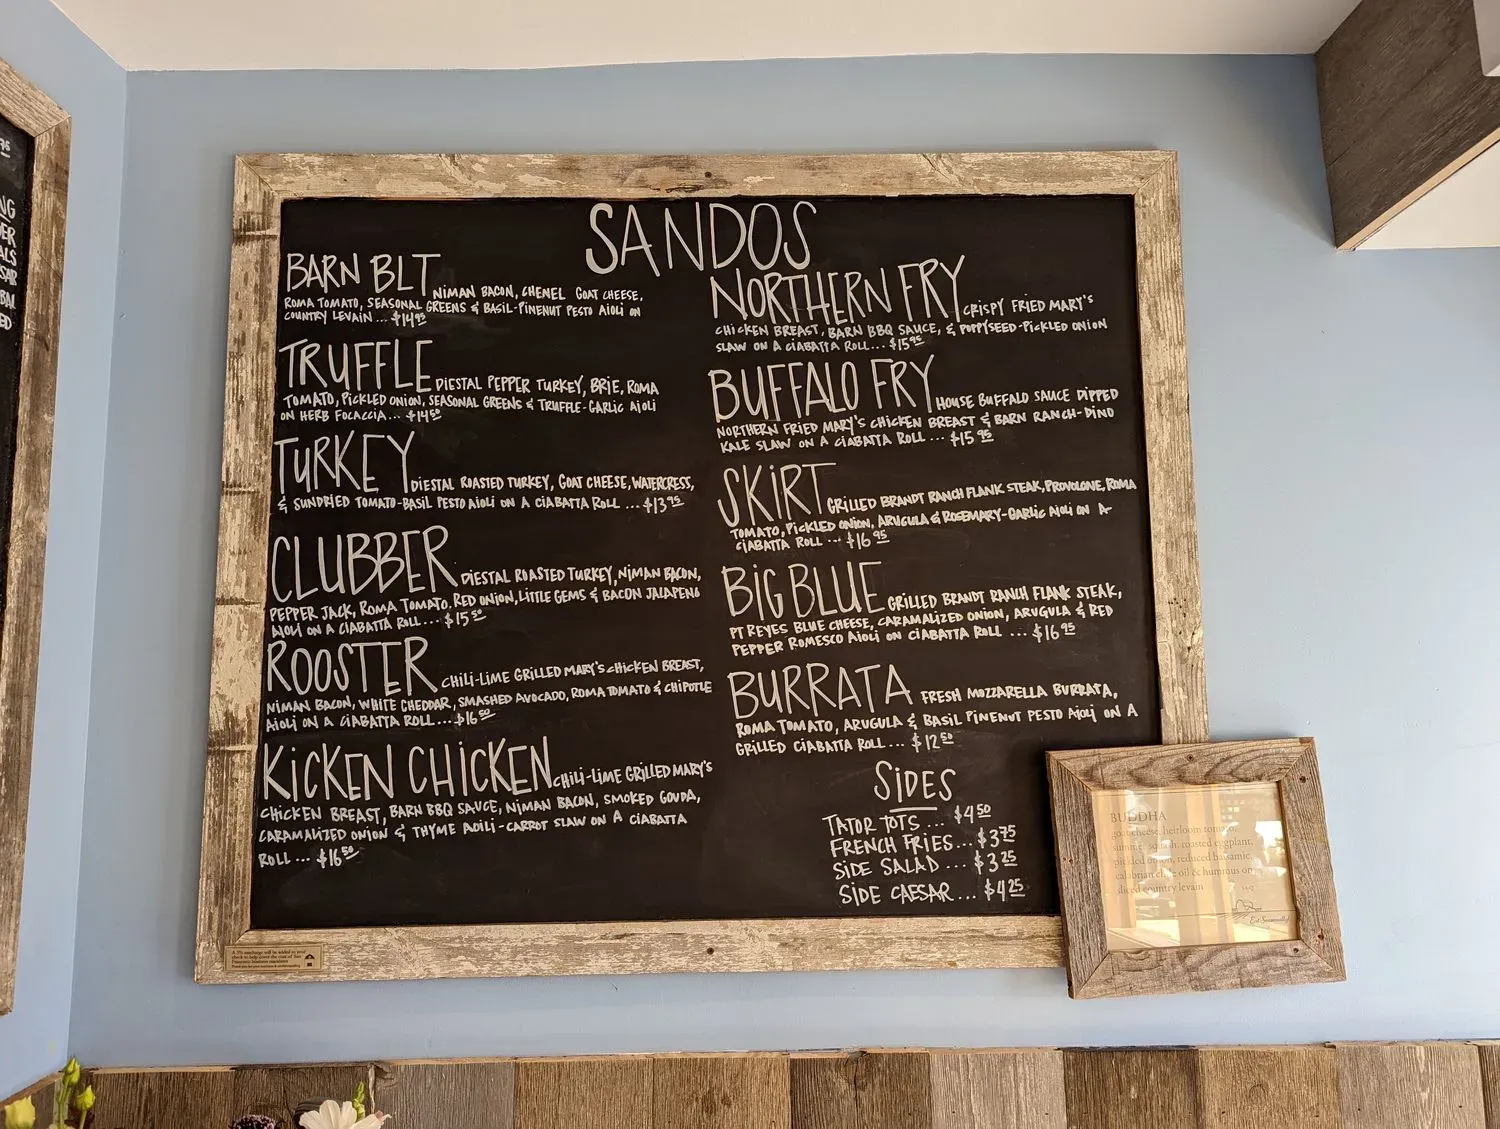 SANDOS
BARN BLT NIMAN BACON, CHENEL GOAT CHEESE,
ROMA TOMATO, SEASONAL GREENS & BASIL-PINENUT PESTO AIOLI ON
COUNTRY LEVAIN ... $14.95
TRUFFLE DIESTAL PEPPER TURKEY, BRIE, ROMA
TOMATO, PICKLED ONION, SEASONAL GREENS & TRUFFLE-GARLIC AIOLI
ON HERB FOCACCIA... $14.50
TURKEY DIESTAL ROASTED TURKEY, GOAT CHEESE, WATERCRESS,
& SUNDRIED TOMATO-BASIL PESTO AIOLI ON A CIABATTA ROLL ... $13.95
CLUBBER DIESTAL ROASTED TURKEY, NIMAN BACON,
PEPPER JACK, ROMA TOMATO, RED ONION, LITTLE GEMS & BACON JALAPENO
AIOLI ON A CIABATTA ROLL ... $15.50
ROOSTER CHILI-LIME GRILLED MARY'S CHICKEN BREAST,
NIMAN BACON, WHITE CHEDDAR, SMASHED AVOCADO, ROMA TOMATO & CHIPOTLE
AIOLI ON A CIABATTA ROLL... $16.50
KICKEN CHICKEN CHILI-LIME GRILLED MARY'S
CHICKEN BREAST, BARN BBQ SAUCE, NIMAN BACON, SMOKED GOUDA,
CARAMALIZED ONION & THYME AOILI-CARROT SLAW ON A CIABATTA
ROLL ... $16.50
NORTHERN FRY CRISPY FRIED MARY'S
CHICKEN BREAST, BARN BBQ SAUCE, & POPPYSEED-PICKLED ONION
SLAW ON A CIABATTA ROLL... $15.95
BUFFALO FRY HOUSE BUFFALO SAUCE DIPPED
NORTHERN FRIED MARY'S CHICKEN BREAST & BARN RANCH-DINO
KALE SLAW ON A CIABATTA ROLL ... $15.95
SKIRT GRILLED BRANDT RANCH FLANK STEAK, PROVOLONE, ROMA
TOMATO, PICKLED ONION, ARUGULA & ROSEMARY-GARLIC AIOLI ON A
CIABATTA ROLL ... $16.95
BIG BLUE GRILLED BRANDT RANCH FLANK STEAK,
PT REYES BLUE CHEESE, CARAMALIZED ONION, ARUGULA & RED
PEPPER ROMESCO AIOLI ON CIABATTA ROLL ... $16.95
BURRATA FRESH MOZZARELLA BURRATA,
ROMA TOMATO, ARUGULA & BASIL PINENUT PESTO AIOLI ON A
GRILLED CIABATTA ROLL ... $12.50
SIDES
TATOR TOTS ... $4.50
FRENCH FRIES... $3.75
SIDE SALAD ... $3.25
SIDE CAESAR ... $4.25
BUDDHA
goat cheese, heirloom tomato,
summer squash, roasted eggplant,
pickled onion, reduced balsamic,
calabrian chile oil & hummus on
sliced country levain
Eat Seasonally
A 5% surcharge will be added to your
check to help cover the cost of San
Francisco business mandates